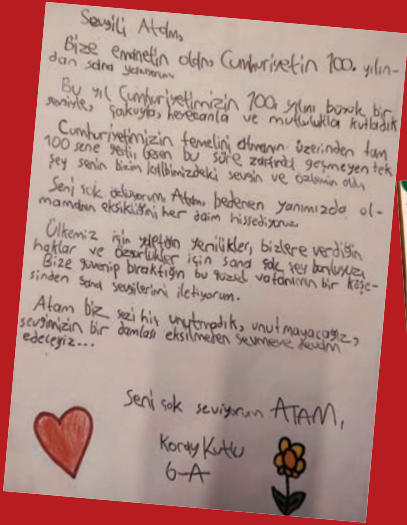 Sevgili Atam,
Bize emanetin olan Cumhuriyetin 100. yılın-
dan sana yazıyorum
Bu yıl Cumhuriyetimizin 100. yılını büyük bir
coşkuyla, heyecanla ve mutlulukla kutladık
Cumhuriyetimizin temelini atmanın üzerinden tam
100 sene geçti. Geçen bu süre zarfında geçmeyen tek
şey senin bizim kalbimizdeki sevgin ve özlemin oldu
Seni çok özlüyorum Atam, bedenen yanımızda ol-
mamanın eksikliğini her daim hissediyoruz
Ülkemiz için yenilikler, bizlere verdiğin
haklar ve özgürlükler için sana çok şey borçluyuz
Bize güvenip bıraktığın bu güzel vatanının bir köşe-
sinden sana sevgilerimi iletiyorum.
Atam biz sizi hiç unutmadık, unutmayacağız,
sevginizin bir damlası eksilmeden sevmeye devam
edeceğiz...
Seni çok seviyorum ATAM,
Koray Kutlu
6-A